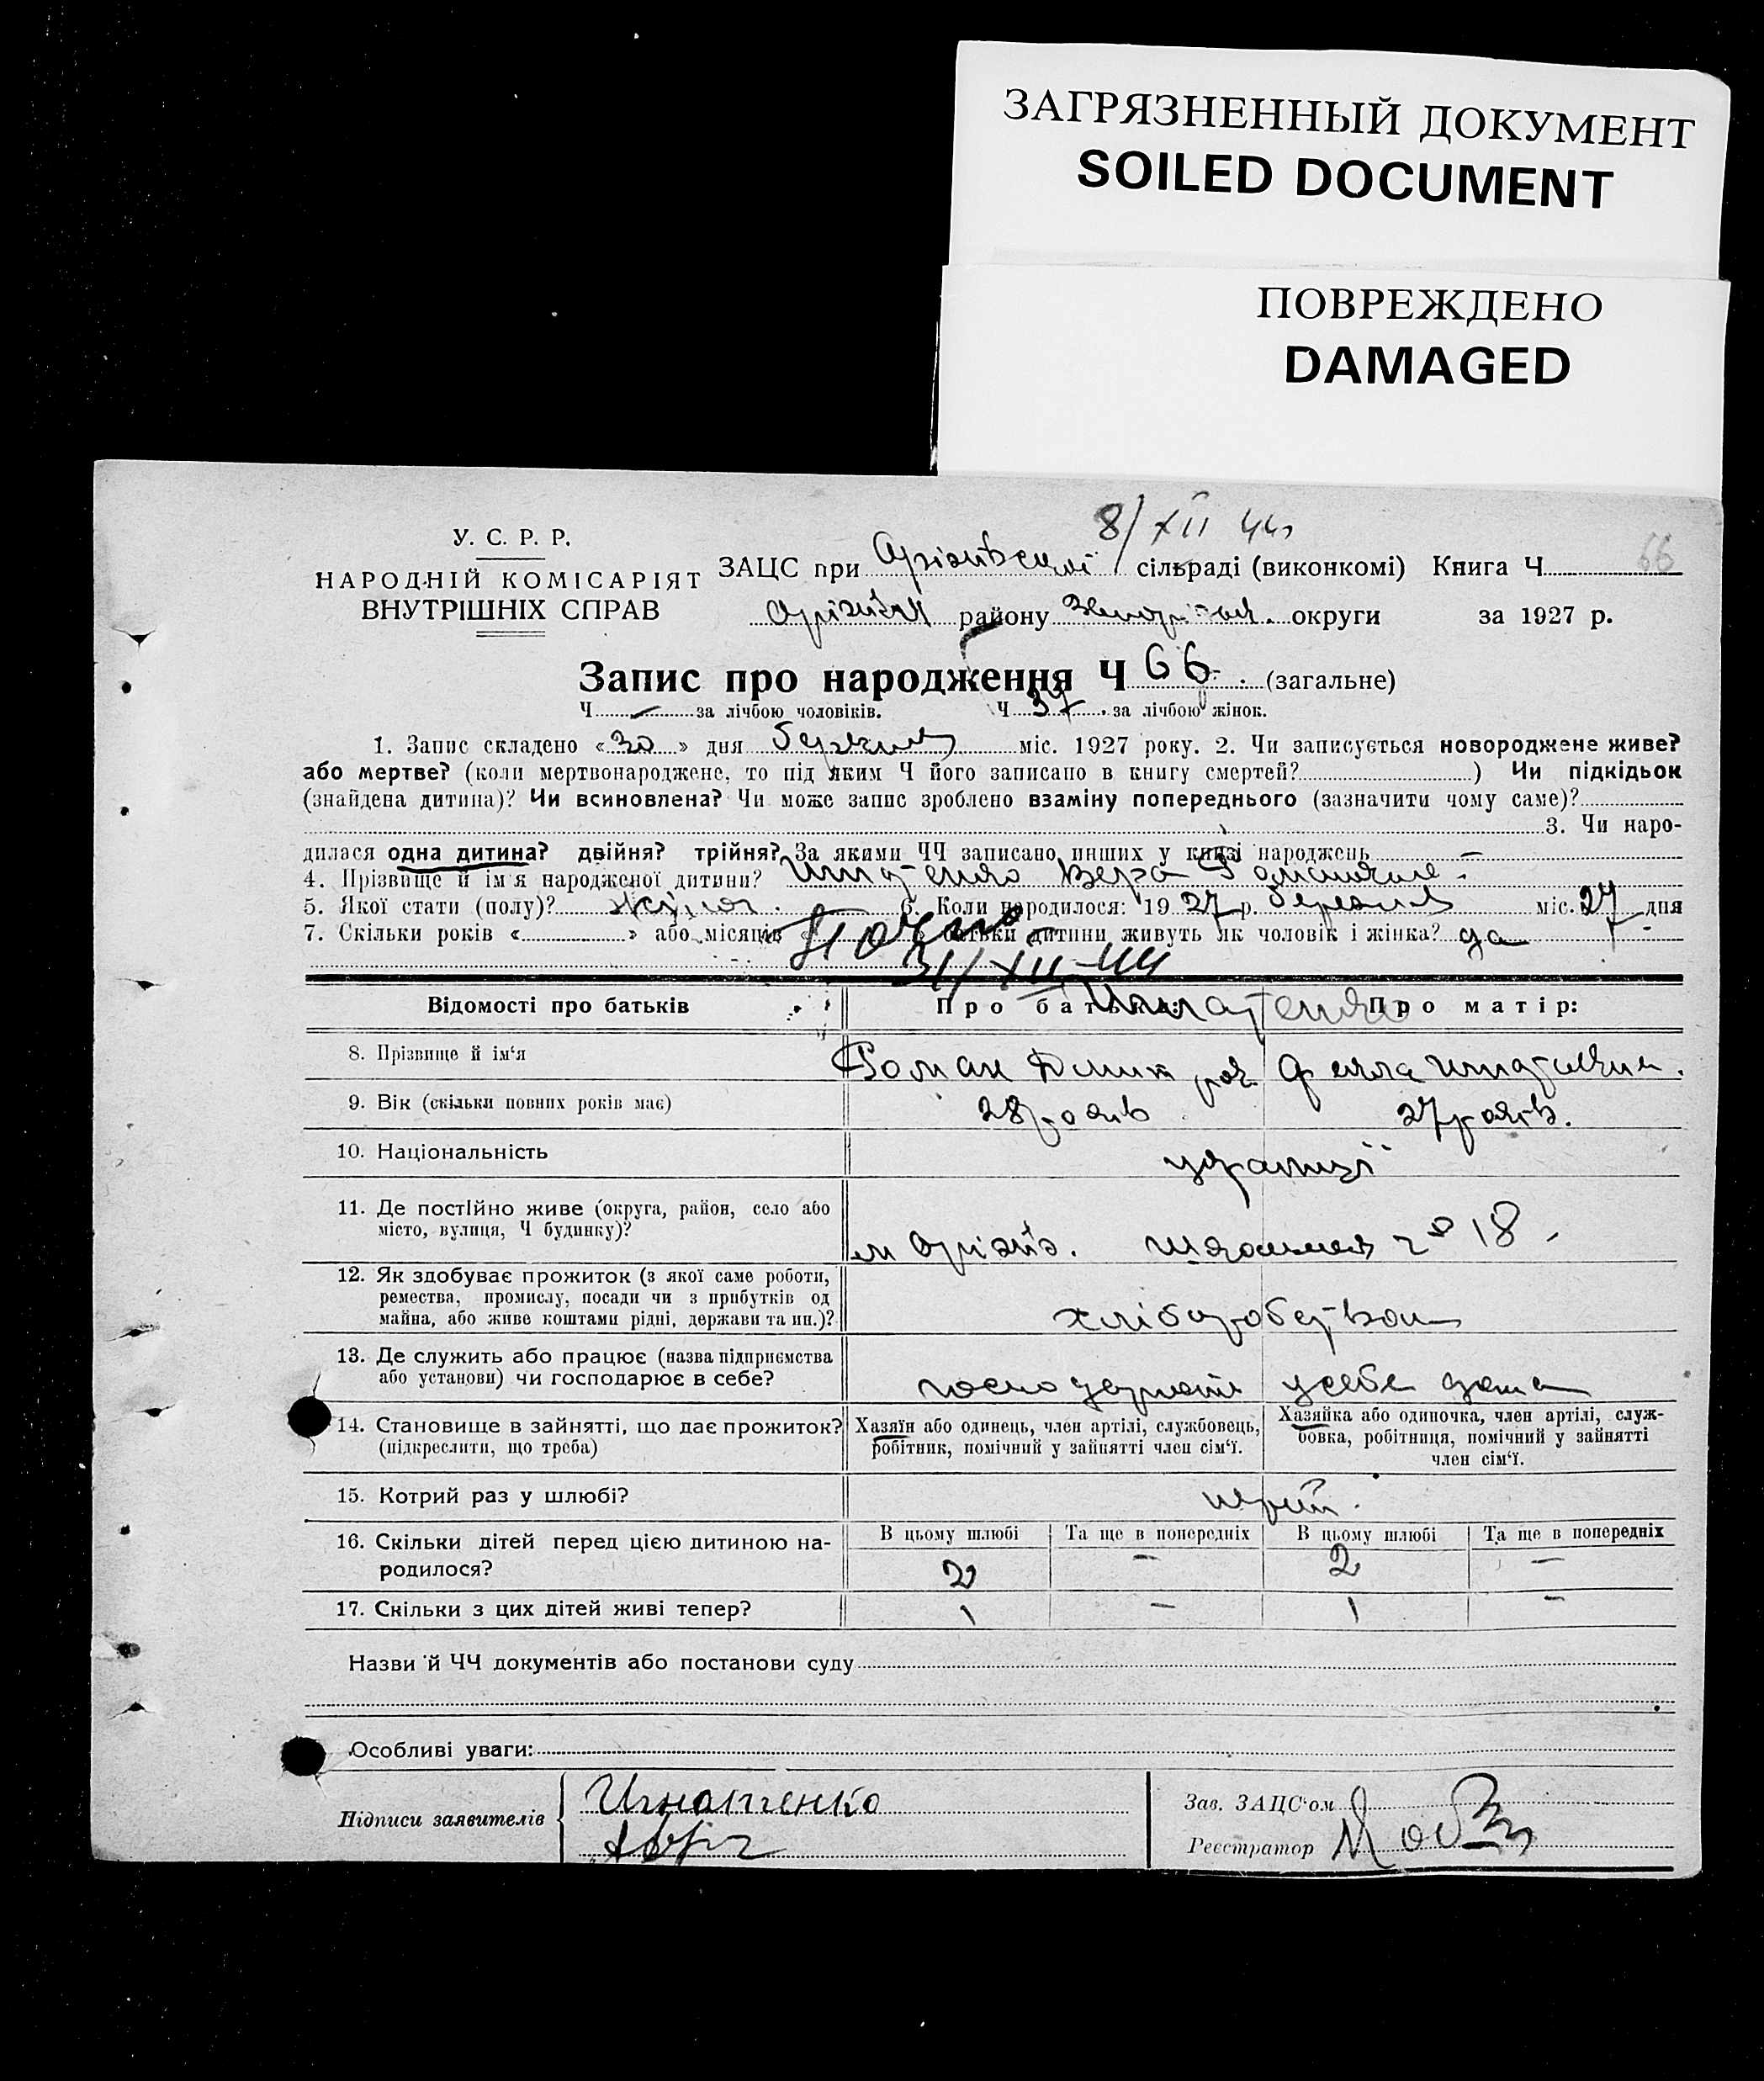 ЗАГРЯЗНЕННЫЙ ДОКУМЕНТ
SOILED DOCUMENT
ПОВРЕЖДЕНО
DAMAGED
8/XII 44
У. С. Р. Р.
НАРОДНІЙ КОМІСАРІЯТ
ВНУТРІШНІХ СПРАВ
ЗАЦС при Оріхівській сільраді (виконкомі) Книга Ч 66
району округи за 1927 р.
Запис про народження Ч 66 (загальне)
Ч — за лічбою чоловіків. Ч 37 за лічбою жінок.
1. Запис складено «30» дня березня міс. 1927 року. 2. Чи записується новороджене живе?
або мертве? (коли мертвонароджене, то під яким Ч його записано в книгу смертей? ) Чи підкідьок
(знайдена дитина)? Чи всиновлена? Чи може запис зроблено взаміну попереднього (зазначити чому саме)?
3. Чи наро-
дилася одна дитина? двійня? трійня? За якими ЧЧ записано инших у книзі народжень —
4. Прізвище й ім'я народженої дитини? Игнатенко Вера Романівна
5. Якої стати (полу)? жіноч. 6. Коли народилося: 1927 р. березня міс. 27 дня
7. Скільки років « » або місяців « » батьки дитини живуть як чоловік і жінка? да
31/XII-44
Відомості про батьків Про батька: Про матір:
Игнатенко
8. Прізвище й ім'я Роман
9. Вік (скільки повних років має) 28 років 27 років.
10. Національність українці
11. Де постійно живе (округа, район, село або
місто, вулиця, Ч будинку)? м Оріхів. 18
12. Як здобуває прожиток (з якої саме роботи,
ремества, промислу, посади чи з прибутків од
майна, або живе коштами рідні, держави та ин.)? хліборобством
13. Де служить або працює (назва підприємства
або установи) чи господарює в себе? у себе дома
14. Становище в зайнятті, що дає прожиток?
(підкреслити, що треба)
Хазяїн або одинець, член артілі, службовець,
робітник, помічний у зайнятті член сім'ї.
Хазяйка або одиночка, член артілі, служ-
бовка, робітниця, помічний у зайнятті
член сім'ї.
15. Котрий раз у шлюбі? перший
16. Скільки дітей перед цією дитиною на-
родилося?
В цьому шлюбі Та ще в попередніх В цьому шлюбі Та ще в попередніх
2 — 2 —
17. Скільки з цих дітей живі тепер? 1 — 1 —
Назви й ЧЧ документів або постанови суду
Особливі уваги:
Підписи заявителів Игнатенко
Зав. ЗАЦС'ом
Реєстратор